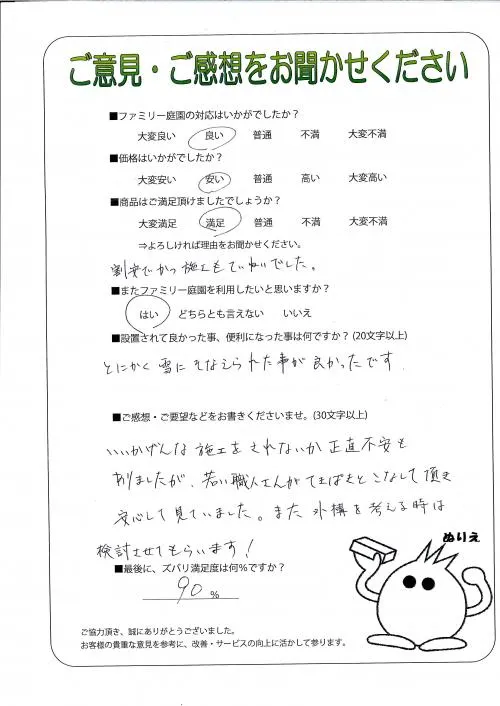 ご意見・ご感想をお聞かせください
■ファミリー庭園の対応はいかがでしたか?
大変良い 良い 普通 不満 大変不満
■価格はいかがでしたか?
大変安い 安い 普通 高い 大変高い
■商品はご満足頂けましたでしょうか?
大変満足 満足 普通 不満 大変不満
⇒よろしければ理由をお聞かせください。
割安でかつ施工もていねいでした。
■またファミリー庭園を利用したいと思いますか?
はい どちらとも言えない いいえ
■設置されて良かった事、便利になった事は何ですか?(20文字以上)
とにかく雪にそなえられた事が良かったです.
■ご感想・ご要望などをお書きくださいませ。(30文字以上)
いいかげんな施工をされないか正直不安も
ありましたが、若い職人さんがてきぱきとこなして頂き
安心して見ていました。また外構を考える時は
検討させてもらいます!
■最後に、ズバリ満足度は何%ですか?
90 %
ぬりえ
ご協力頂き、誠にありがとうございました。
お客様の貴重な意見を参考に、改善・サービスの向上に活かして参ります。